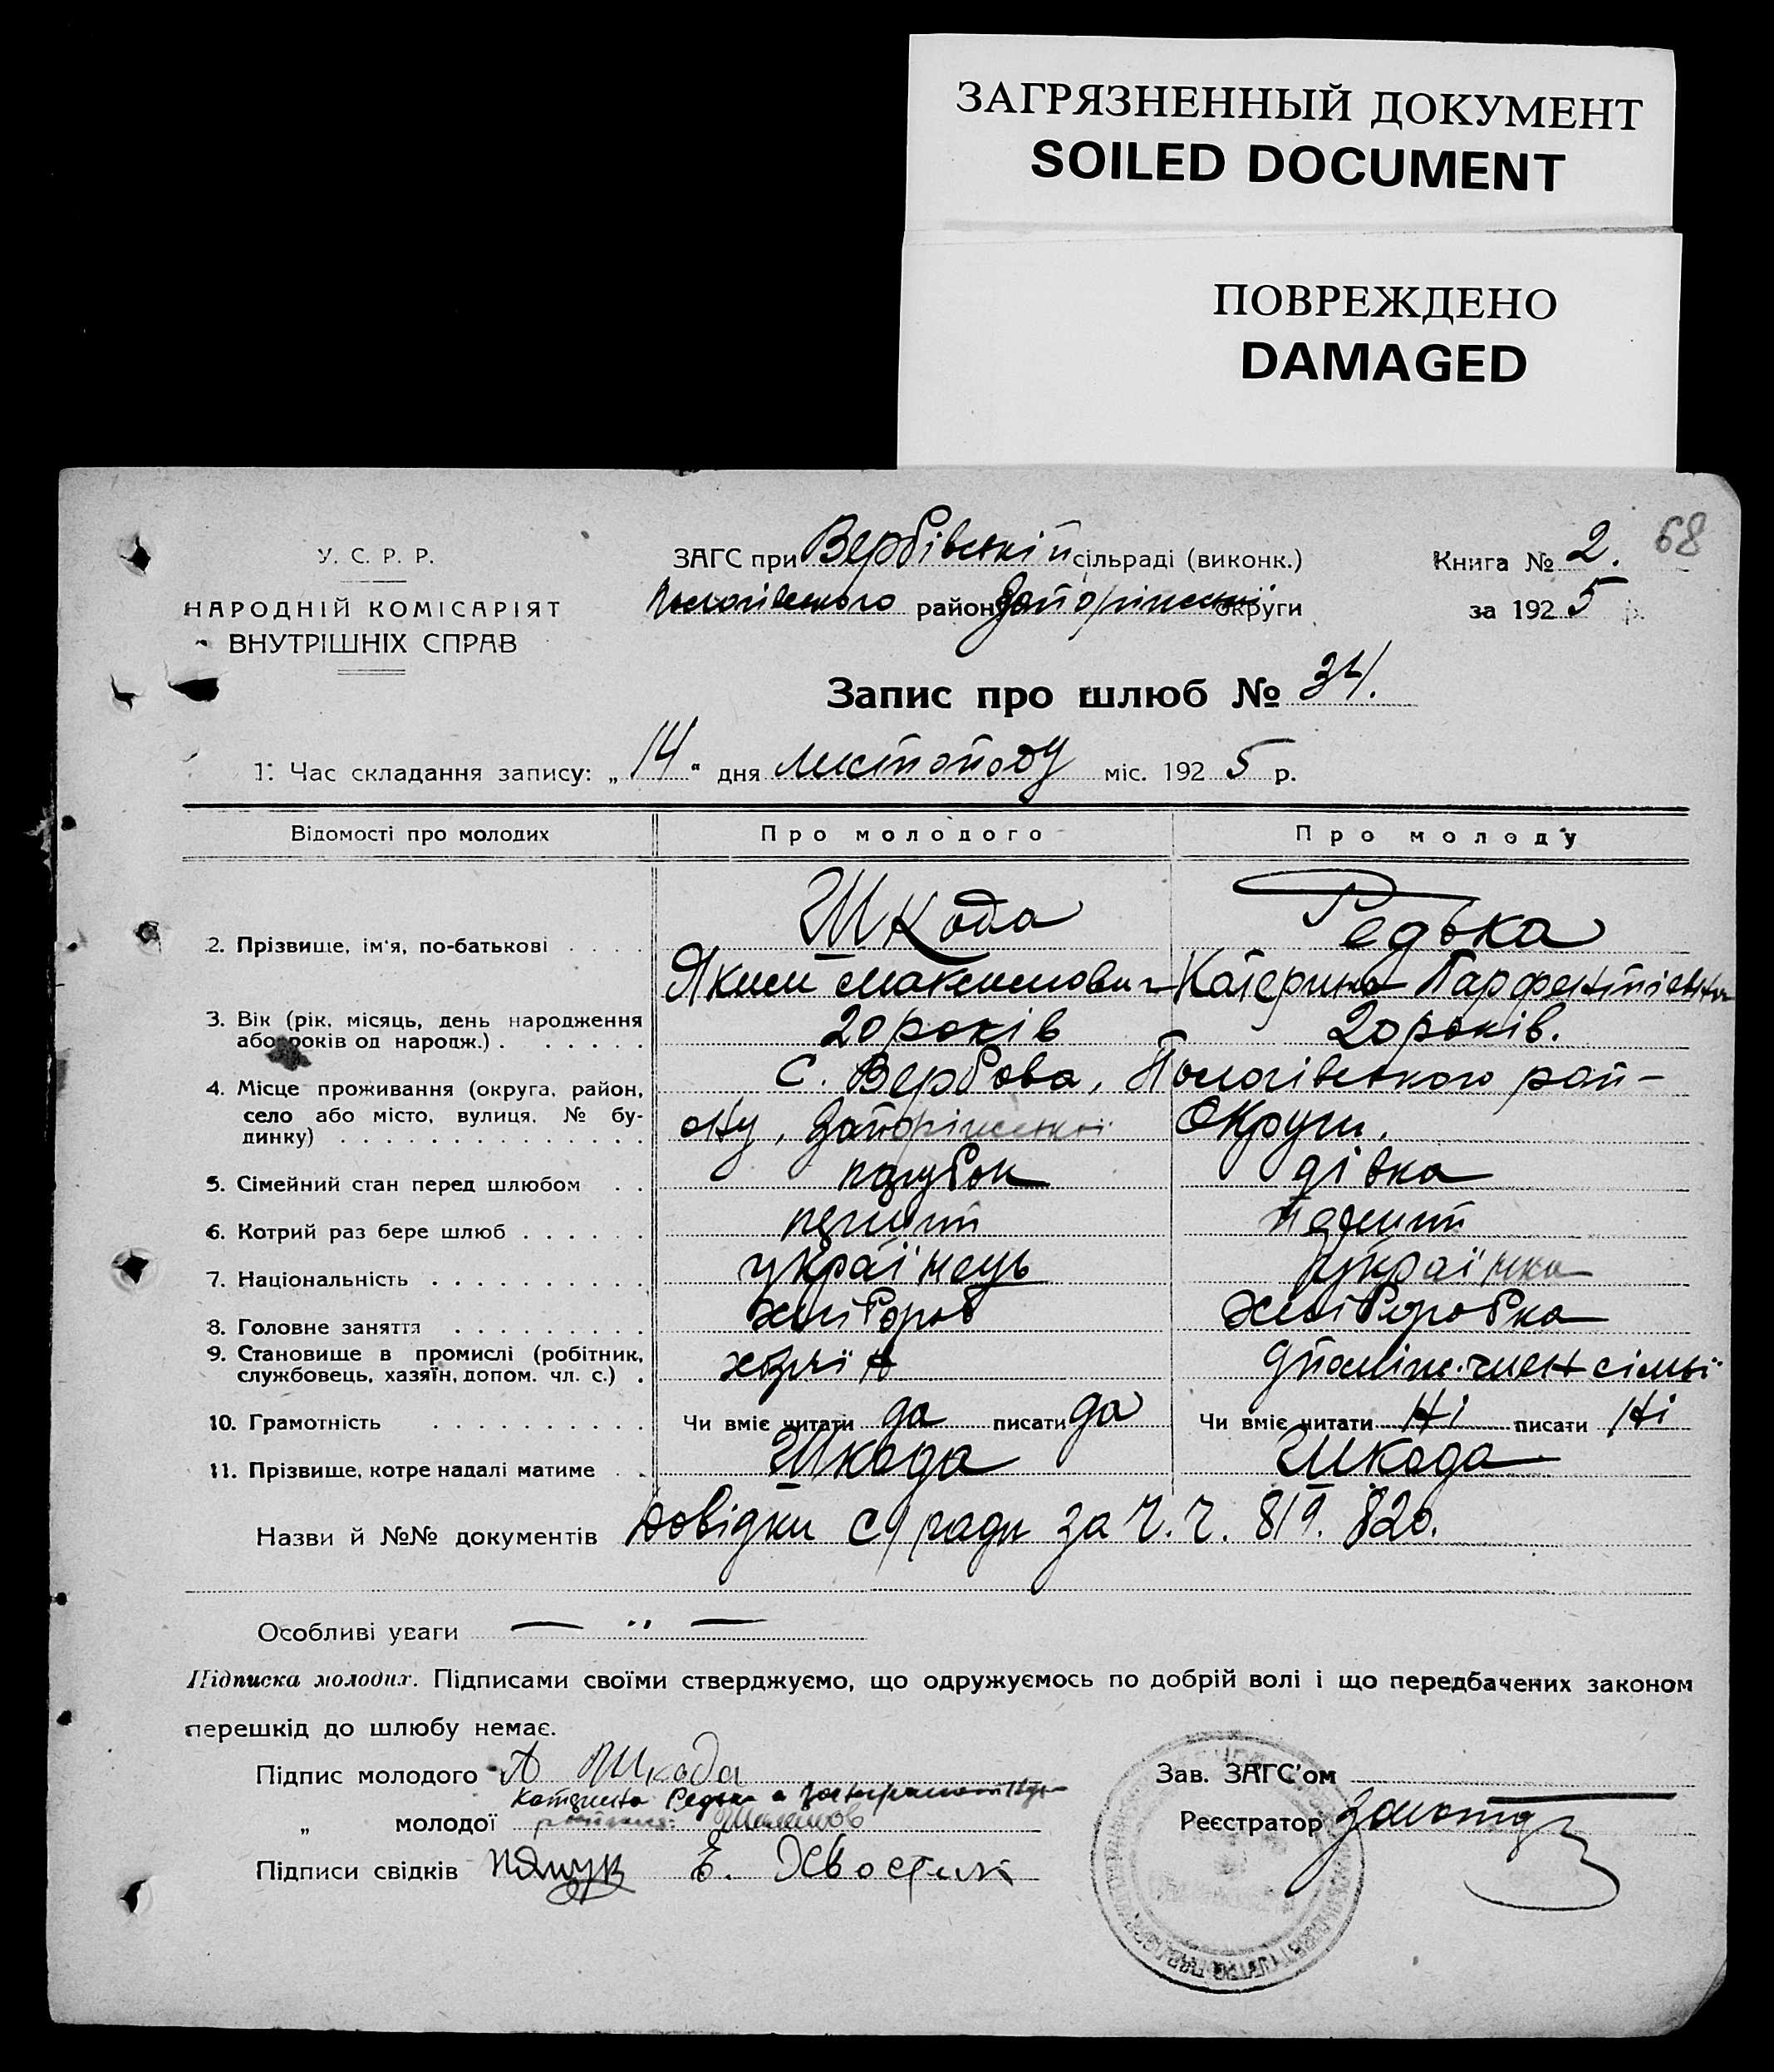 ЗАГРЯЗНЕННЫЙ ДОКУМЕНТ
SOILED DOCUMENT
ПОВРЕЖДЕНО
DAMAGED
68
У. С. Р. Р.
НАРОДНІЙ КОМІСАРІЯТ
ВНУТРІШНІХ СПРАВ
ЗАГС при Вербівській сільраді (виконк.)
Пологівського район Запоріжської округи
Книга № 2.
за 1925 р.
Запис про шлюб № 34.
1. Час складання запису: „14" дня листопаду міс. 1925 р.
Відомості про молодих Про молодого Про молоду
2. Прізвище, ім'я, по-батькові Шкода Редька
Яким Максимович Катерина Парфентіевна
3. Вік (рік, місяць, день народження 20 років 20 років.
або років од народж.)
4. Місце проживання (округа, район, с. Вербова, Пологівського рай-
село або місто, вулиця, № бу- ону, Запоріжської Округи.
динку)
5. Сімейний стан перед шлюбом парубок дівка
6. Котрий раз бере шлюб перший перший
7. Національність українець українка
8. Головне заняття хлібороб хліборобка
9. Становище в промислі (робітник, хазяїн допоміж. член сімьї
службовець, хазяїн, допом. чл. с.)
10. Грамотність Чи вміє читати да писати да Чи вміє читати Ні писати Ні
11. Прізвище, котре надалі матиме Шкода Шкода
Назви й №№ документів Довідки с/ради за Ч. Ч. 819. 820.
Особливі уваги — „ —
Підписка молодих. Підписами своїми стверджуємо, що одружуємось по добрій волі і що передбачених законом
перешкід до шлюбу немає.
Підпис молодого Я Шкода
Катерина Редька а
„ молодої
Підписи свідків Е. Хвостик
Зав. ЗАГС'ом
Реєстратор